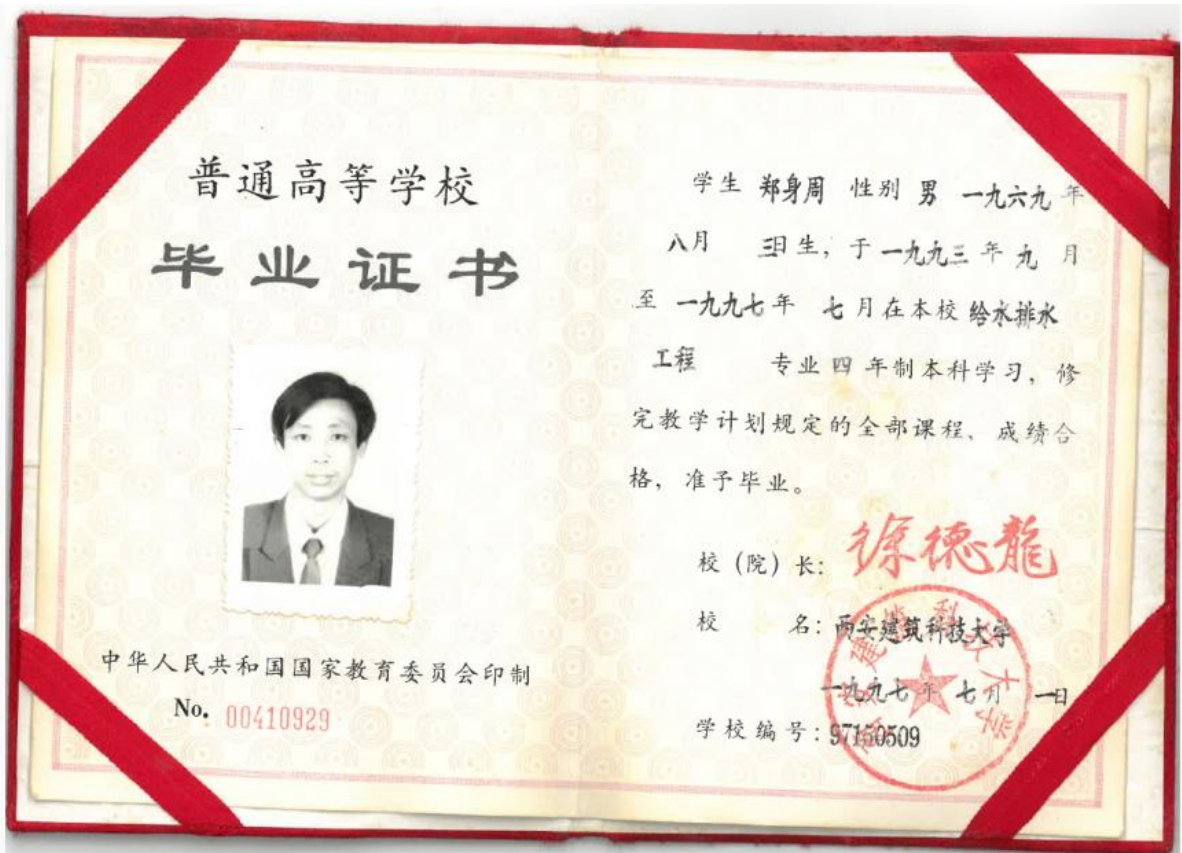 普通高等学校
毕业证书
中华人民共和国国家教育委员会印制
No. 00410929
学生 郑身周 性别 男 一九六九年
八月 三日生，于一九九三年九月
至 一九九七年 七月在本校 给水排水
工程 专业四年制本科学习，修
完教学计划规定的全部课程、成绩合
格，准予毕业。
校（院）长：徐德龍
校 名：西安建筑科技大学
一九九七年七月 一日
学校编号：97150509
西安建筑科技大学